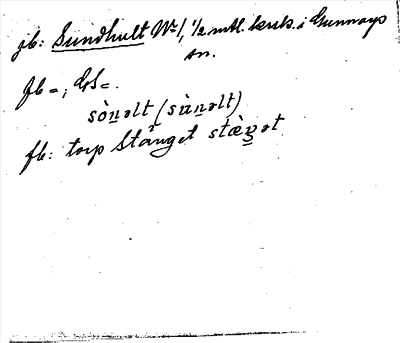 jb: Sundhult Nr 1, 1/2 mtl. krsk. i Gunnarps
sn.
Jb =; GS =.
sòn̲əlt (sùn̲əlt)
fb: torp Stånget stæ̀ŋət